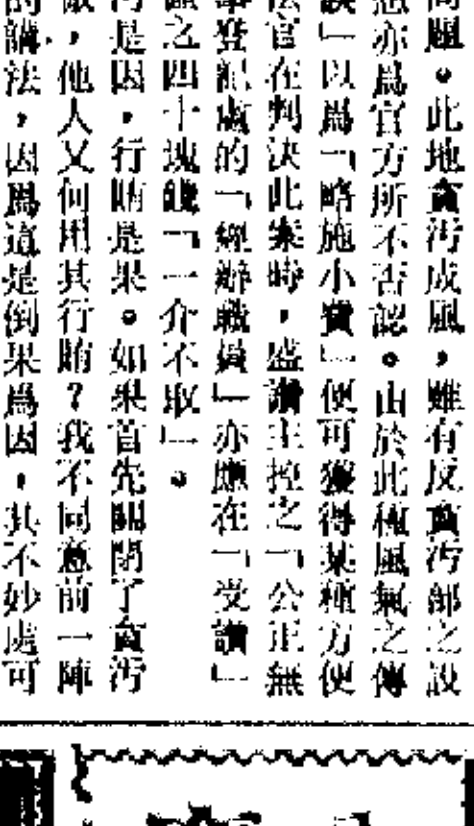 問題。此地貪汚成風，雖有反貪汚部之設
亦爲官方所不否認。由於此種風氣之傳
以爲「略施小費」便可獲得某種方便
法官在判決此案時，盛讚主控之「公正無
登記處的「經辦職員」亦應在「受讚」
之四十塊錢「一介不取」。
是因，行賄是果。如果首先關閉了貪汚
，他人又何用其行賄？我不同意前一陣
的講法，因爲這是倒果爲因，其不妙處可